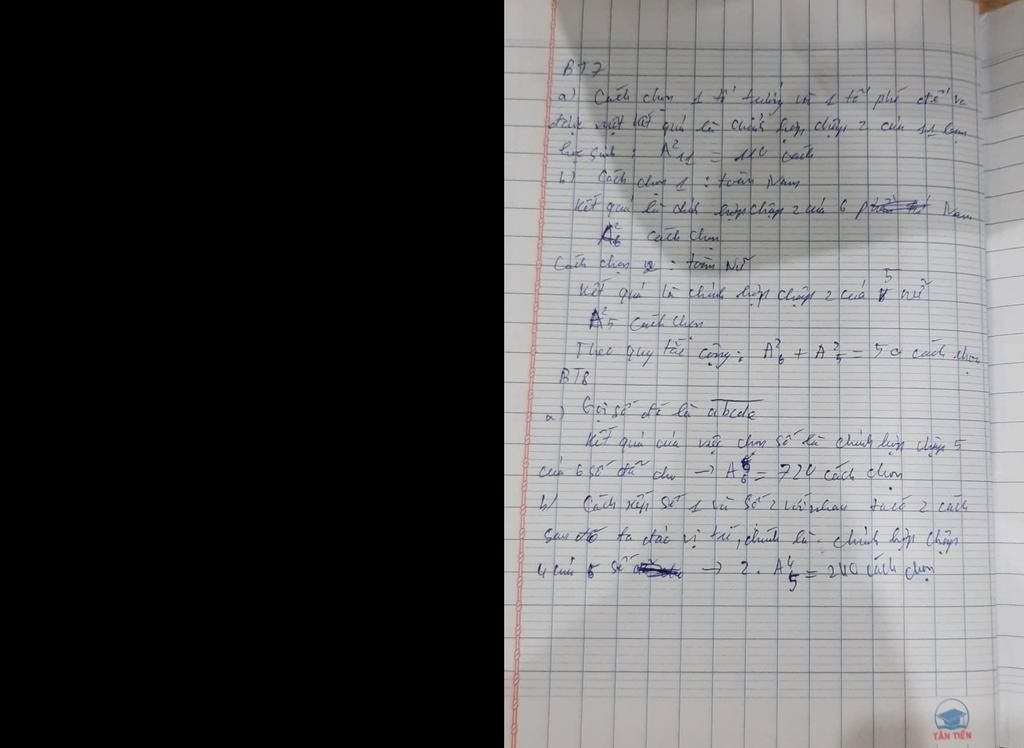 BT7
a) Cách chọn 1 tổ trưởng và 1 tổ phó để
được một kết quả là chỉnh hợp chập 2 của 11 bạn
học sinh : A²11 = 110 cách
b) Cách chọn 1 : toàn Nam
Kết quả là chỉnh hợp chập 2 của 6 Nam
A²6 cách chọn
Cách chọn 2 : toàn Nữ
Kết quả là chỉnh hợp chập 2 của 5 nữ
A²5 cách chọn
Theo quy tắc cộng: A²6 + A²5 = 50 cách chọn
BT8
a) Gọi số đó là abcde
Kết quả của việc chọn số là chỉnh hợp chập 5
của 6 số đã cho → = 720 cách chọn
b) Cách xếp số 1 và số 2 với nhau ta có 2 cách
sau đó ta vị trí, chính là chỉnh hợp chập
4 của 5 số → 2. A⁴5 = 240 cách chọn
TÂN TIẾN